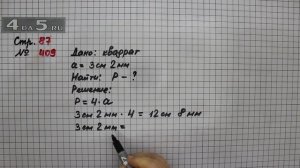 4на5.ru
Стр. 87
№ 409
Дано: квадрат
a = 3см 2мм
Найти: P - ?
Решение:
P = 4 · a
3см 2мм · 4 = 12см 8мм
3см 2мм =